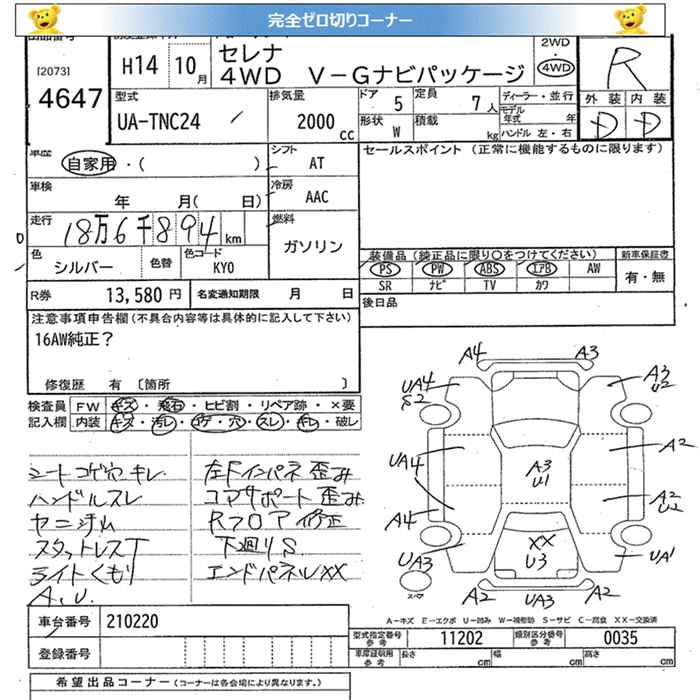 完全ゼロ切りコーナー
出品番号
[2073]
4647
H14 10月
セレナ
4WD V-Gナビパッケージ
2WD
・4WD
R
型式
UA-TNC24
排気量
2000 cc
ドア 5
定員 7人
形状 W
積載 kg
ディーラー・並行
モデル年式 年
ハンドル 左・右
外装 内装
D D
車歴 自家用・( )
シフト AT
車検 年 月( 日)
冷房 AAC
走行 18万6千894 km
燃料 ガソリン
色 シルバー
色替
色コード KY0
R券 13,580 円
名変通知期限 月 日
セールスポイント (正常に機能するものに限ります)
装備品 (純正品に限り○をつけてください)
PS PW ABS エアB AW
SR ナビ TV カワ
新車保証書
有・無
後日品
注意事項申告欄 (不具合内容等は具体的に記入して下さい)
16AW純正?
修復歴 有 [箇所 ]
検査員記入欄
FW キズ・飛石・ヒビ割・リペア跡・×要
内装 キズ・汚レ・コゲ・穴・スレ・キレ・破レ
シートコゲ穴キレ
ハンドルスレ
ヤニ汚レ
スタットレスT
ライトくもり
A.U.
左Fインパネ歪み
コアサポート歪み
Rフロア修正
下廻りS
エンドパネルXX
A4 A3
UA4
S2
A3
U2
UA4
A3
U1
A2
A4
A2
U2
UA3
XX
U3
UA1
スペア
A2 UA3 A2
A-キズ E-エクボ U-凹み W-補修跡 S-サビ C-腐食 XX-交換済
車台番号 210220
登録番号
型式指定番号 参考 11202
類別区分番号 参考 0035
車庫証明用 参考
長さ cm
幅 cm
高さ cm
希望出品コーナー (コーナーは各会場により異なります。)